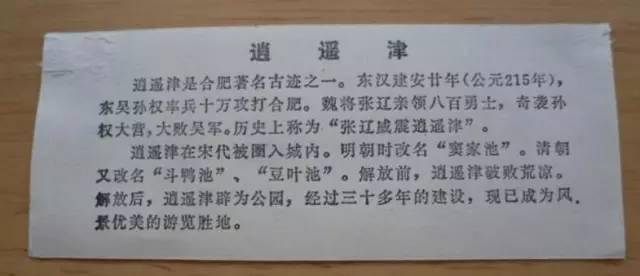 逍遥津
逍遥津是合肥著名古迹之一。东汉建安廿年(公元215年),
东吴孙权率兵十万攻打合肥。魏将张辽亲领八百勇士，奇袭孙
权大营，大败吴军。历史上称为“张辽威震逍遥津”。
逍遥津在宋代被圈入城内。明朝时改名“窦家池”。清朝
又改名“斗鸭池”、“豆叶池”。解放前，逍遥津破败荒凉。
解放后，逍遥津辟为公园，经过三十多年的建设，现已成为风
景优美的游览胜地。